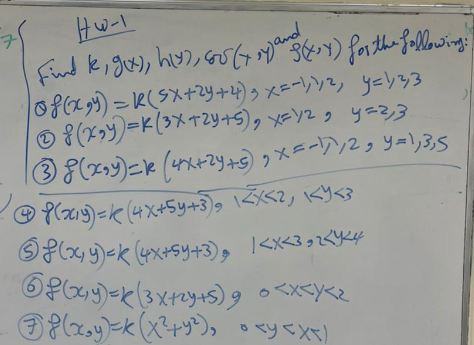 HW-1
Find k, g(x), h(y), cov(x,y) and ρ(x,y) for the following:
① f(x,y)=k(5x+2y+4), x=-1,1,2, y=1,2,3
② f(x,y)=k(3x+2y+5), x=1,2, y=2,3
③ f(x,y)=k(4x+2y+5), x=-1,1,2, y=1,3,5
④ f(x,y)=k(4x+5y+3), 1<x<2, 1<y<3
⑤ f(x,y)=k(4x+5y+3), 1<x<3, 2<y<4
⑥ f(x,y)=k(3x+2y+5), 0<x<y<2
⑦ f(x,y)=k(x²+y²), 0<y<x<1